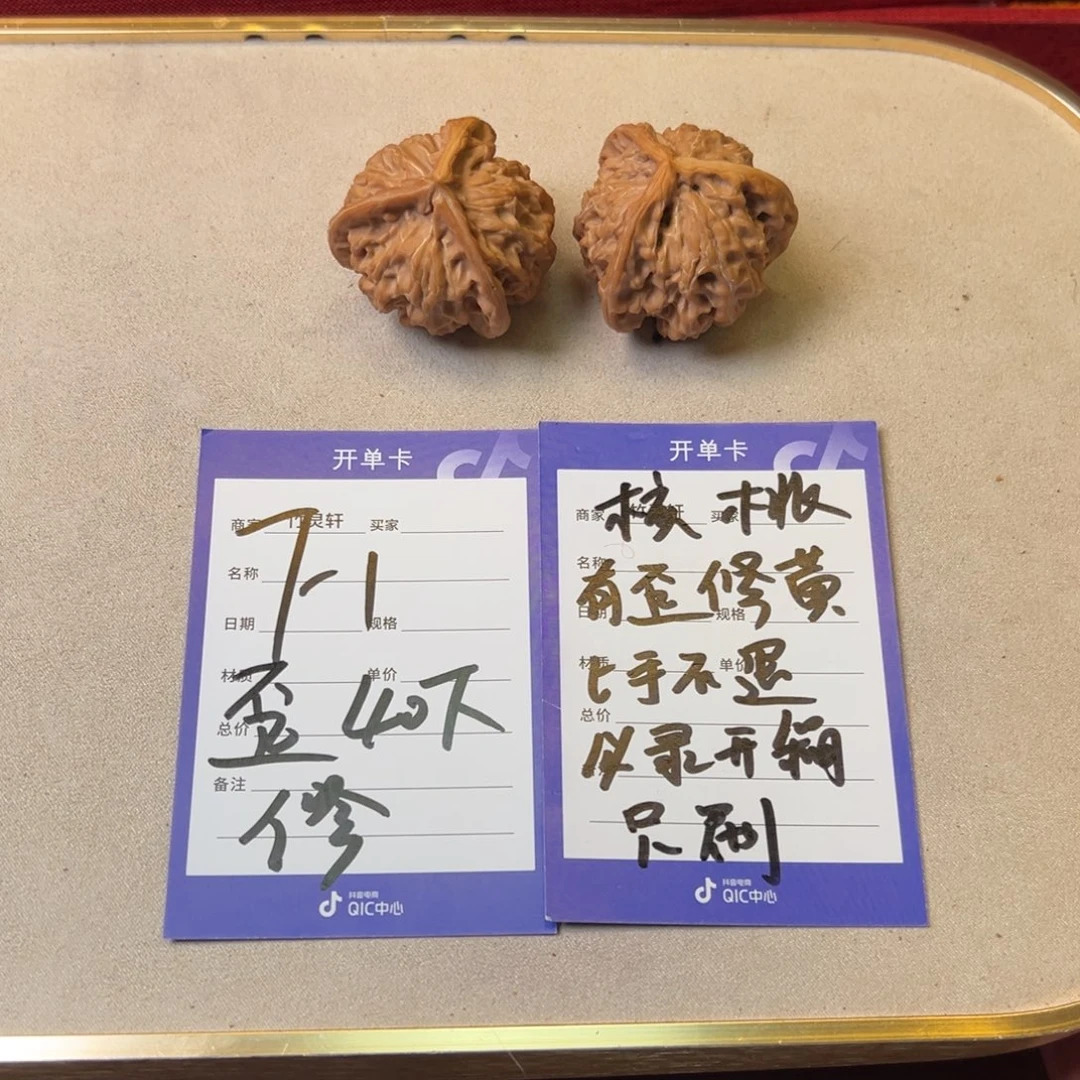 开单卡
商家 竹灵轩 买家
名称
日期 规格
材质 单价
总价
备注
7-1
歪 40下
修
抖音电商
QIC中心
开单卡
商家 竹灵轩 买家
名称
日期 规格
材质 单价
总价
核桃
有歪修黄
上手不退
必录开箱
只刷
抖音电商
QIC中心